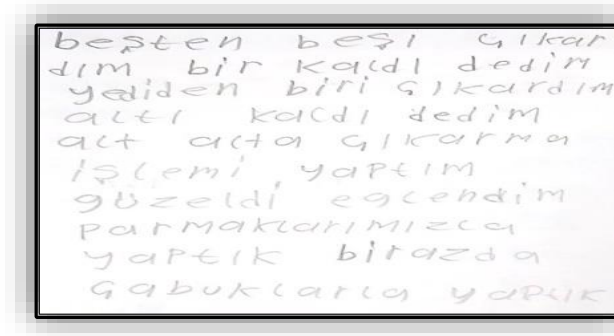 beşten beşi çıkar
dım bir kaldı dedim
yediden biri çıkardım
altı kaldı dedim
alt alta çıkarma
işlemi yaptım
güzeldi eğlendim
parmaklarımızla
yaptık birazda
çabuklarla yaptık